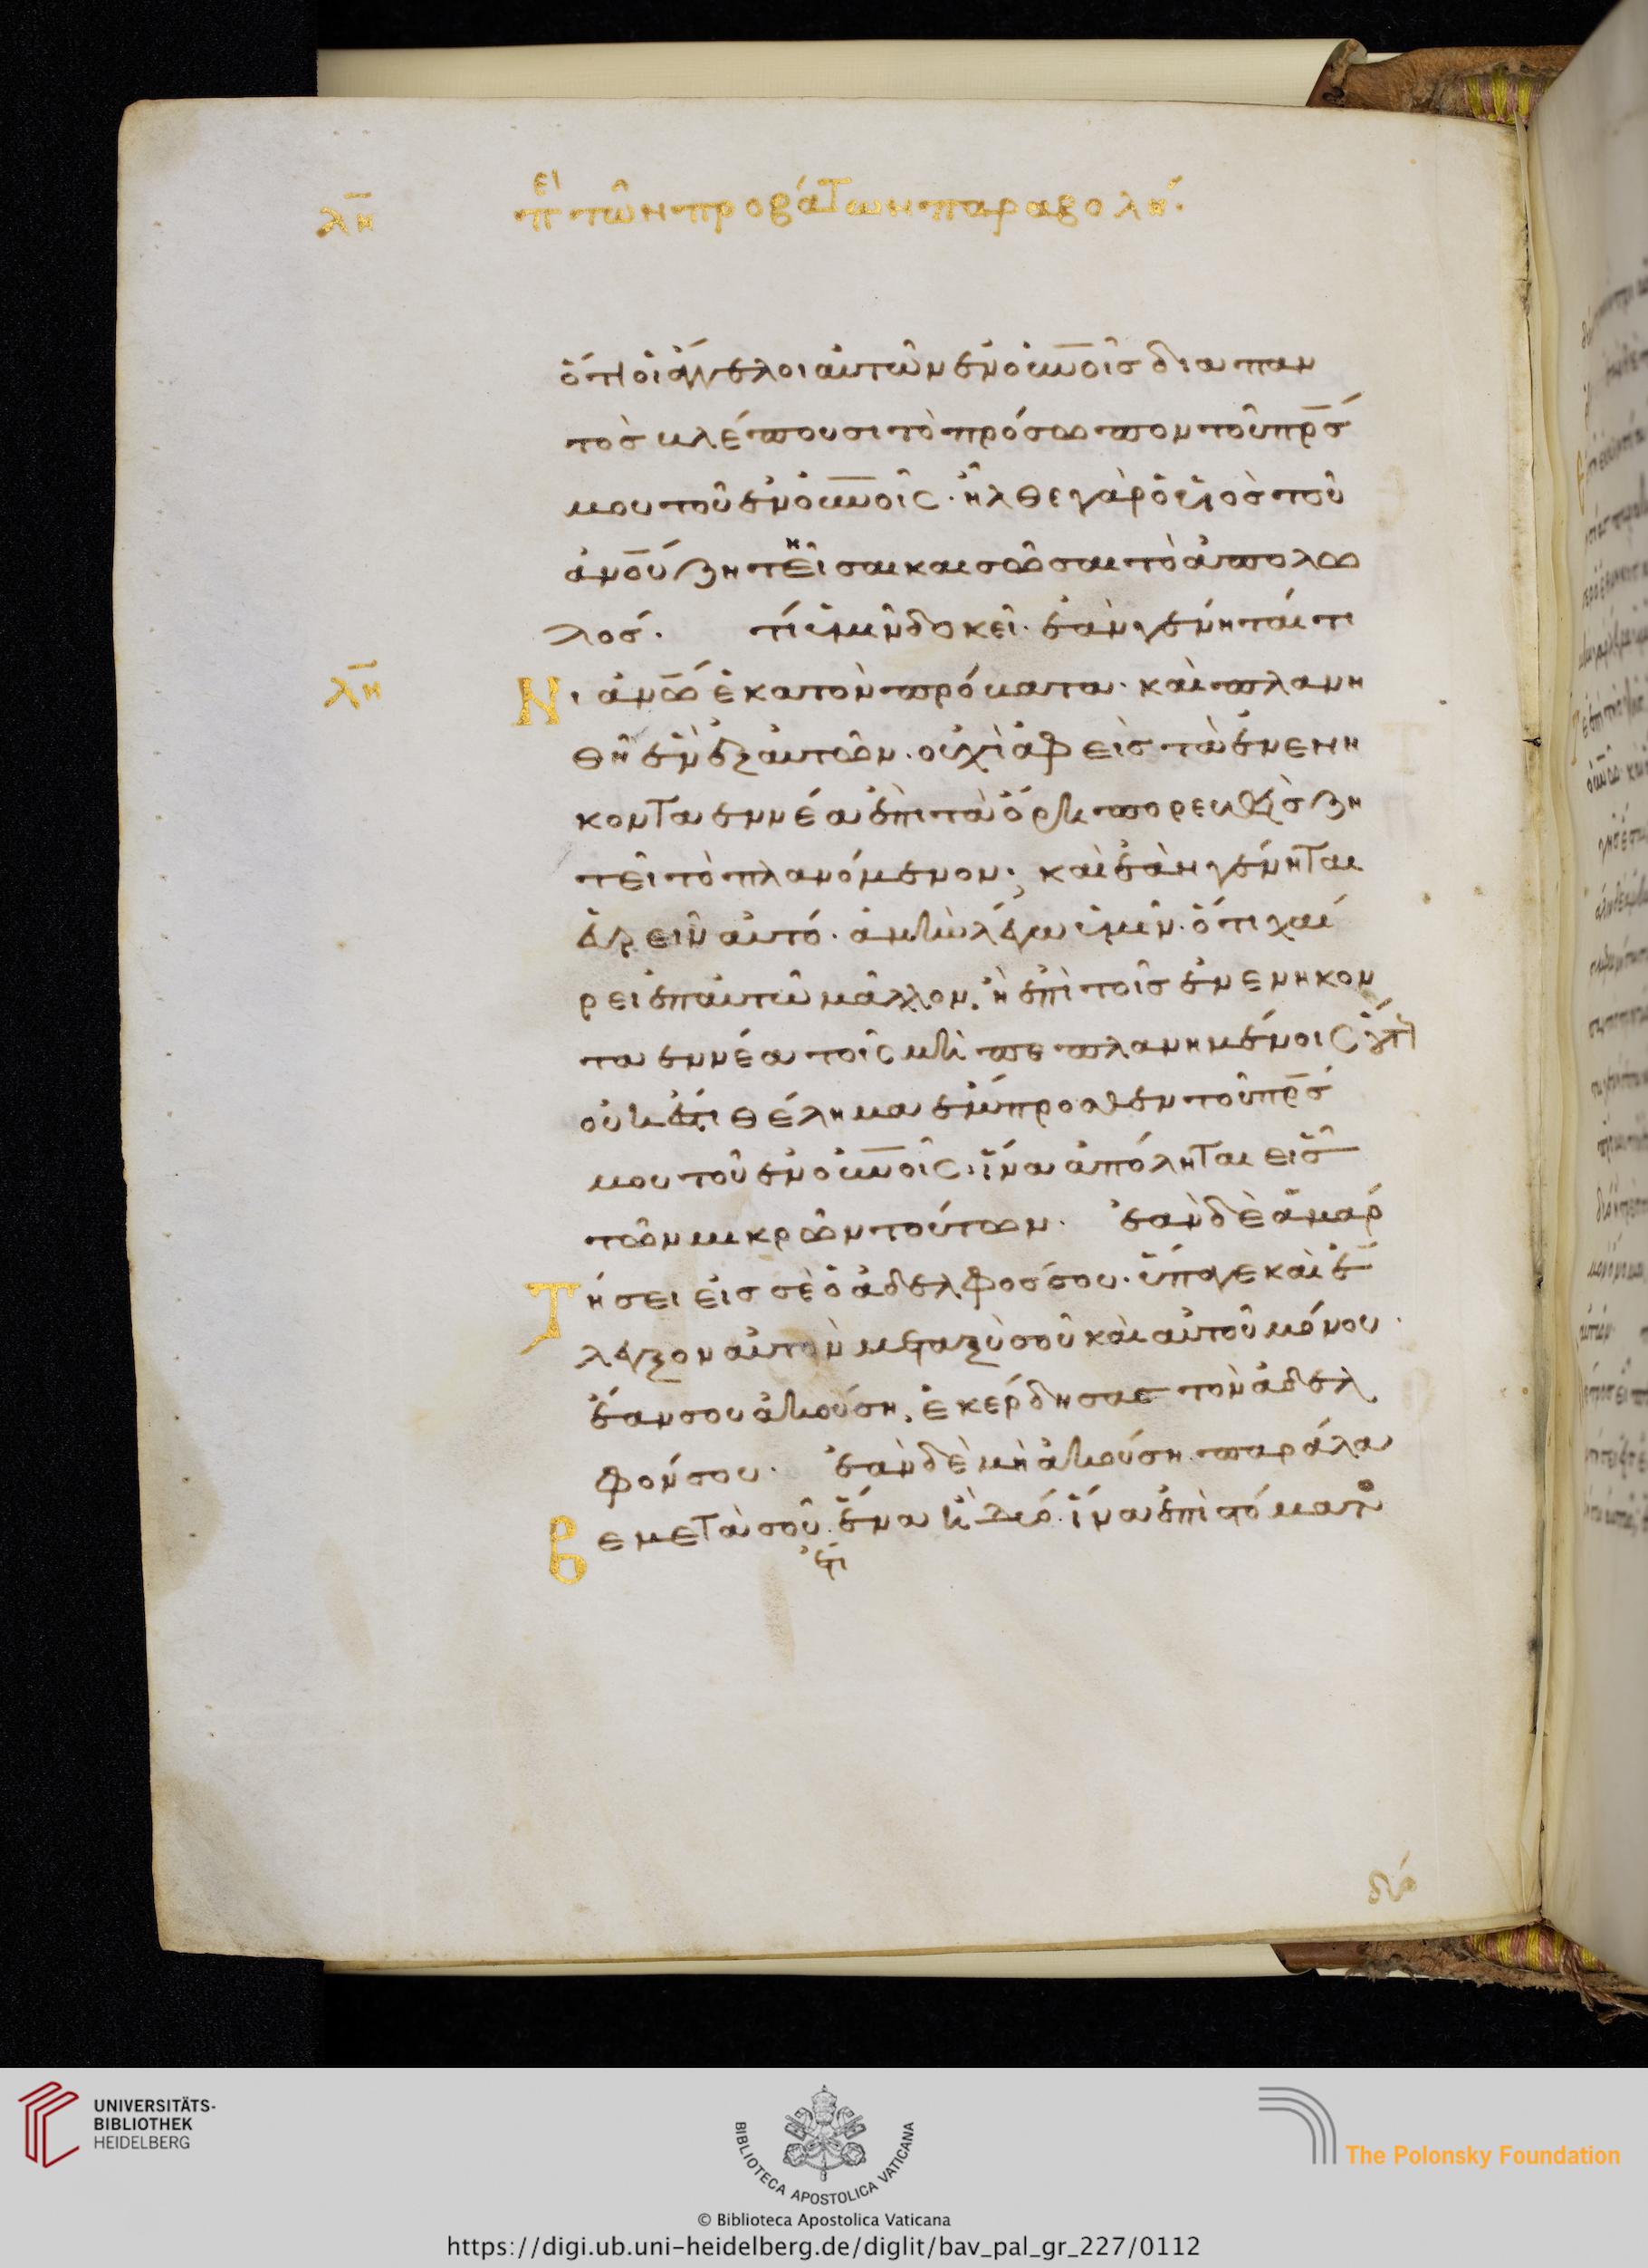 λη περι των προβάτων παραβολή·
ὅτι οἱ ἄγγελοι αὐτῶν ἐν ο̅υ̅ν̅ο̅ι̅ς̅ δια παν
τὸς βλέπουσι τὸ πρόσωπον τοῦ π̅ρ̅ς̅
μου τοῦ ἐν ο̅υ̅ν̅ο̅ι̅ς̅· ἦλθε γὰρ ὁ υἱὸς τοῦ
α̅ν̅ο̅υ̅ ζητεῖσαι και σῶσαι τὸ ἀπολω
λος. τί ὑμῖν δοκεῖ· ἐὰν γένηταί τι
λη Νι α̅ν̅ω̅ ἑκατὸν πρόβατα· καὶ πλανη
θῆ ἓν ἐξ αὐτῶν· οὐχὶ ἀφεὶς τὰ ἐνενη
κοντα ἐννέα ἐπὶ τὰ ὄρη πορευθεὶς ζη
τεῖ τὸ πλανόμενον; καὶ ἐὰν γένηται
εὑρεῖν αὐτό· ἀμὴν λέγω ὑμῖν· ὅτι χαί
ρει ἐπ αὐτῶ μᾶλλον, ἢ ἐπὶ τοῖς ἐνενηκον
τα ἐννέα τοῖς μὴ πεπλανημένοις
οὐκ ἔστι θέλημα ἔμπροσθεν τοῦ π̅ρ̅ς̅
μου τοῦ ἐν ο̅υ̅ν̅ο̅ι̅ς̅· ἵνα ἀπόληται εἷς
τῶν μικρῶν τούτων· ἐὰν δὲ ἁμάρ
Τήσει εἰς σὲ ὁ ἀδελφός σου· ὕπαγε καὶ ἔ
λεγξον αὐτὸν μεταξὺ σοῦ καὶ αὐτοῦ μόνου·
ἐάν σου ἀκούση, ἐκέρδησας τὸν ἀδελ
φόν σου· ἐὰν δὲ μὴ ἀκούση παράλα
Βε μετὰ σοῦ ἔτι ἕνα ἢ δύο· ἵνα ἐπὶ στόματος
δύο
UNIVERSITÄTS-
BIBLIOTHEK
HEIDELBERG
BIBLIOTECA APOSTOLICA VATICANA
The Polonsky Foundation
© Biblioteca Apostolica Vaticana
https://digi.ub.uni-heidelberg.de/diglit/bav_pal_gr_227/0112